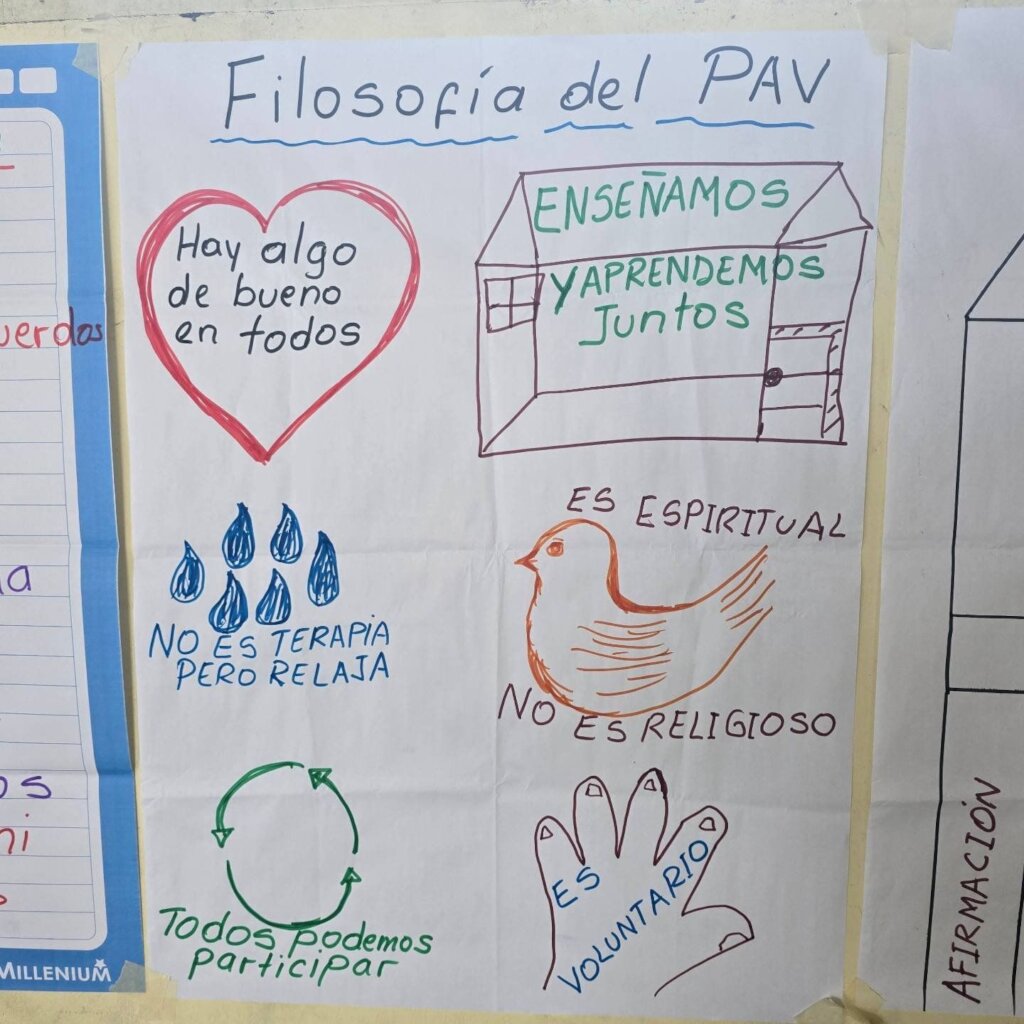 Filosofía del PAV
Hay algo
de bueno
en todos
ENSEÑAMOS
Y APRENDEMOS
Juntos
NO ES TERAPIA
PERO RELAJA
ES ESPIRITUAL
NO ES RELIGIOSO
Todos podemos
participar
ES
VOLUNTARIO
MILLENIUM
AFIRMACIÓN